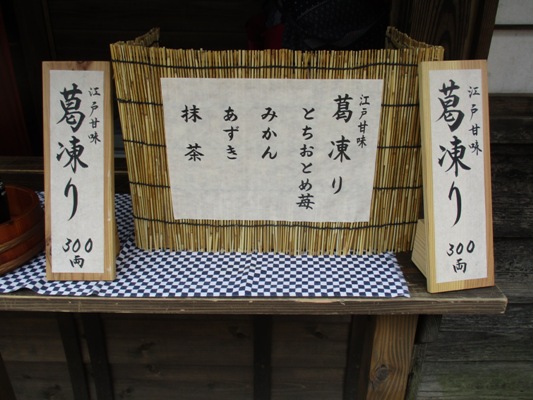 江戸甘味
葛凍り
300
両
江戸甘味
葛凍り
とちおとめ苺
みかん
あずき
抹茶
江戸甘味
葛凍り
300
両